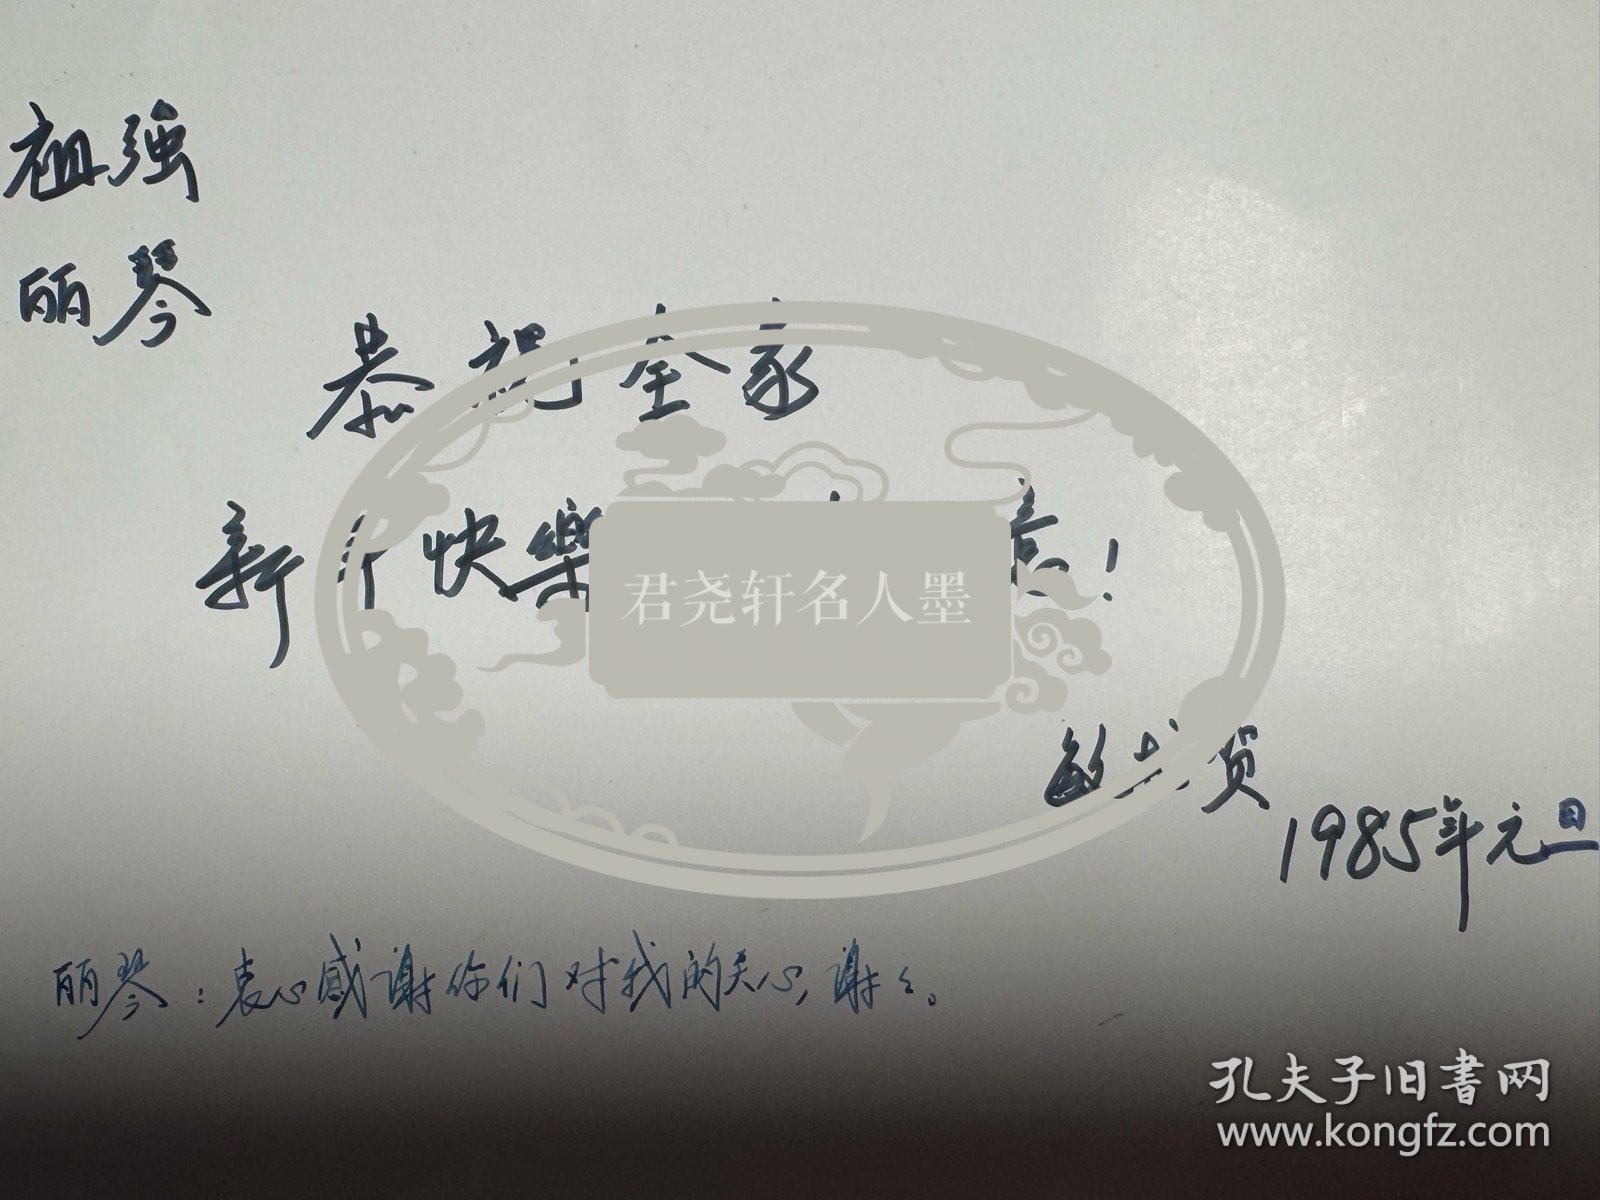 祖强
丽琴
恭祝全家
新年快樂 意！
君尧轩名人墨
敏 贺
1985年元旦
丽琴：衷心感谢你们对我的关心，谢々。
孔夫子旧书网
www.kongfz.com